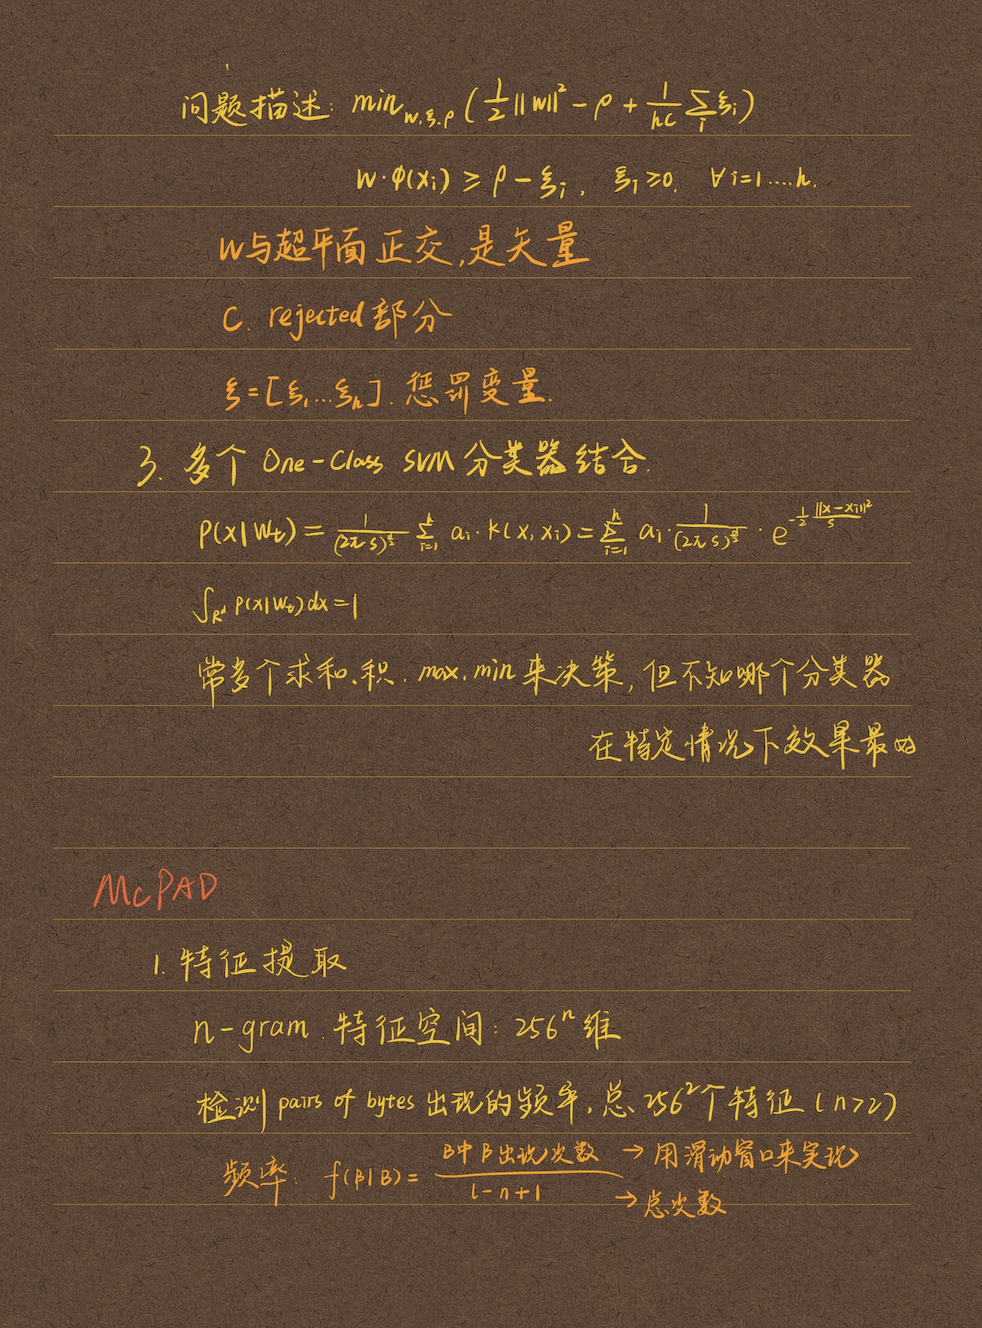 问题描述: min_{w,ξ,ρ} (1/2 ||w||² - ρ + 1/(hC) Σ_i ξi)
w·φ(xi) ≥ ρ - ξi, ξi ≥ 0, ∀i=1....h.
w与超平面正交,是矢量
C. rejected部分
ξ=[ξ1...ξh]. 惩罚变量.
3. 多个 One-Class SVM 分类器结合.
p(x|wt) = 1/(2πs)^{d/2} Σ_{i=1}^{h} ai·k(x,xi) = Σ_{i=1}^{h} ai·1/(2πs)^{d/2}·e^{-1/2 ||x-xi||²/s}
∫_{R^d} p(x|wt)dx=1
常多个求和、积. max. min 来决策, 但不知哪个分类器
在特定情况下效果最好
McPAD
1. 特征提取
n-gram. 特征空间: 256ⁿ维
检测 pairs of bytes 出现的频率, 总256²个特征 (n>2)
频率: f(β|B) = B中β出现次数 / l-n+1 → 用滑动窗口来实现
→ 总次数